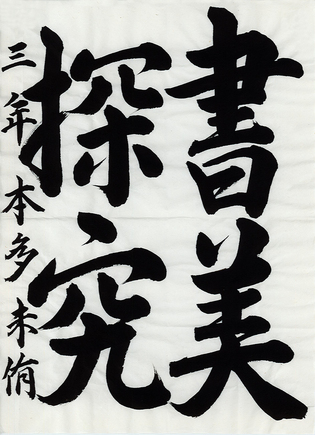 書美
探究
三年本多未侑